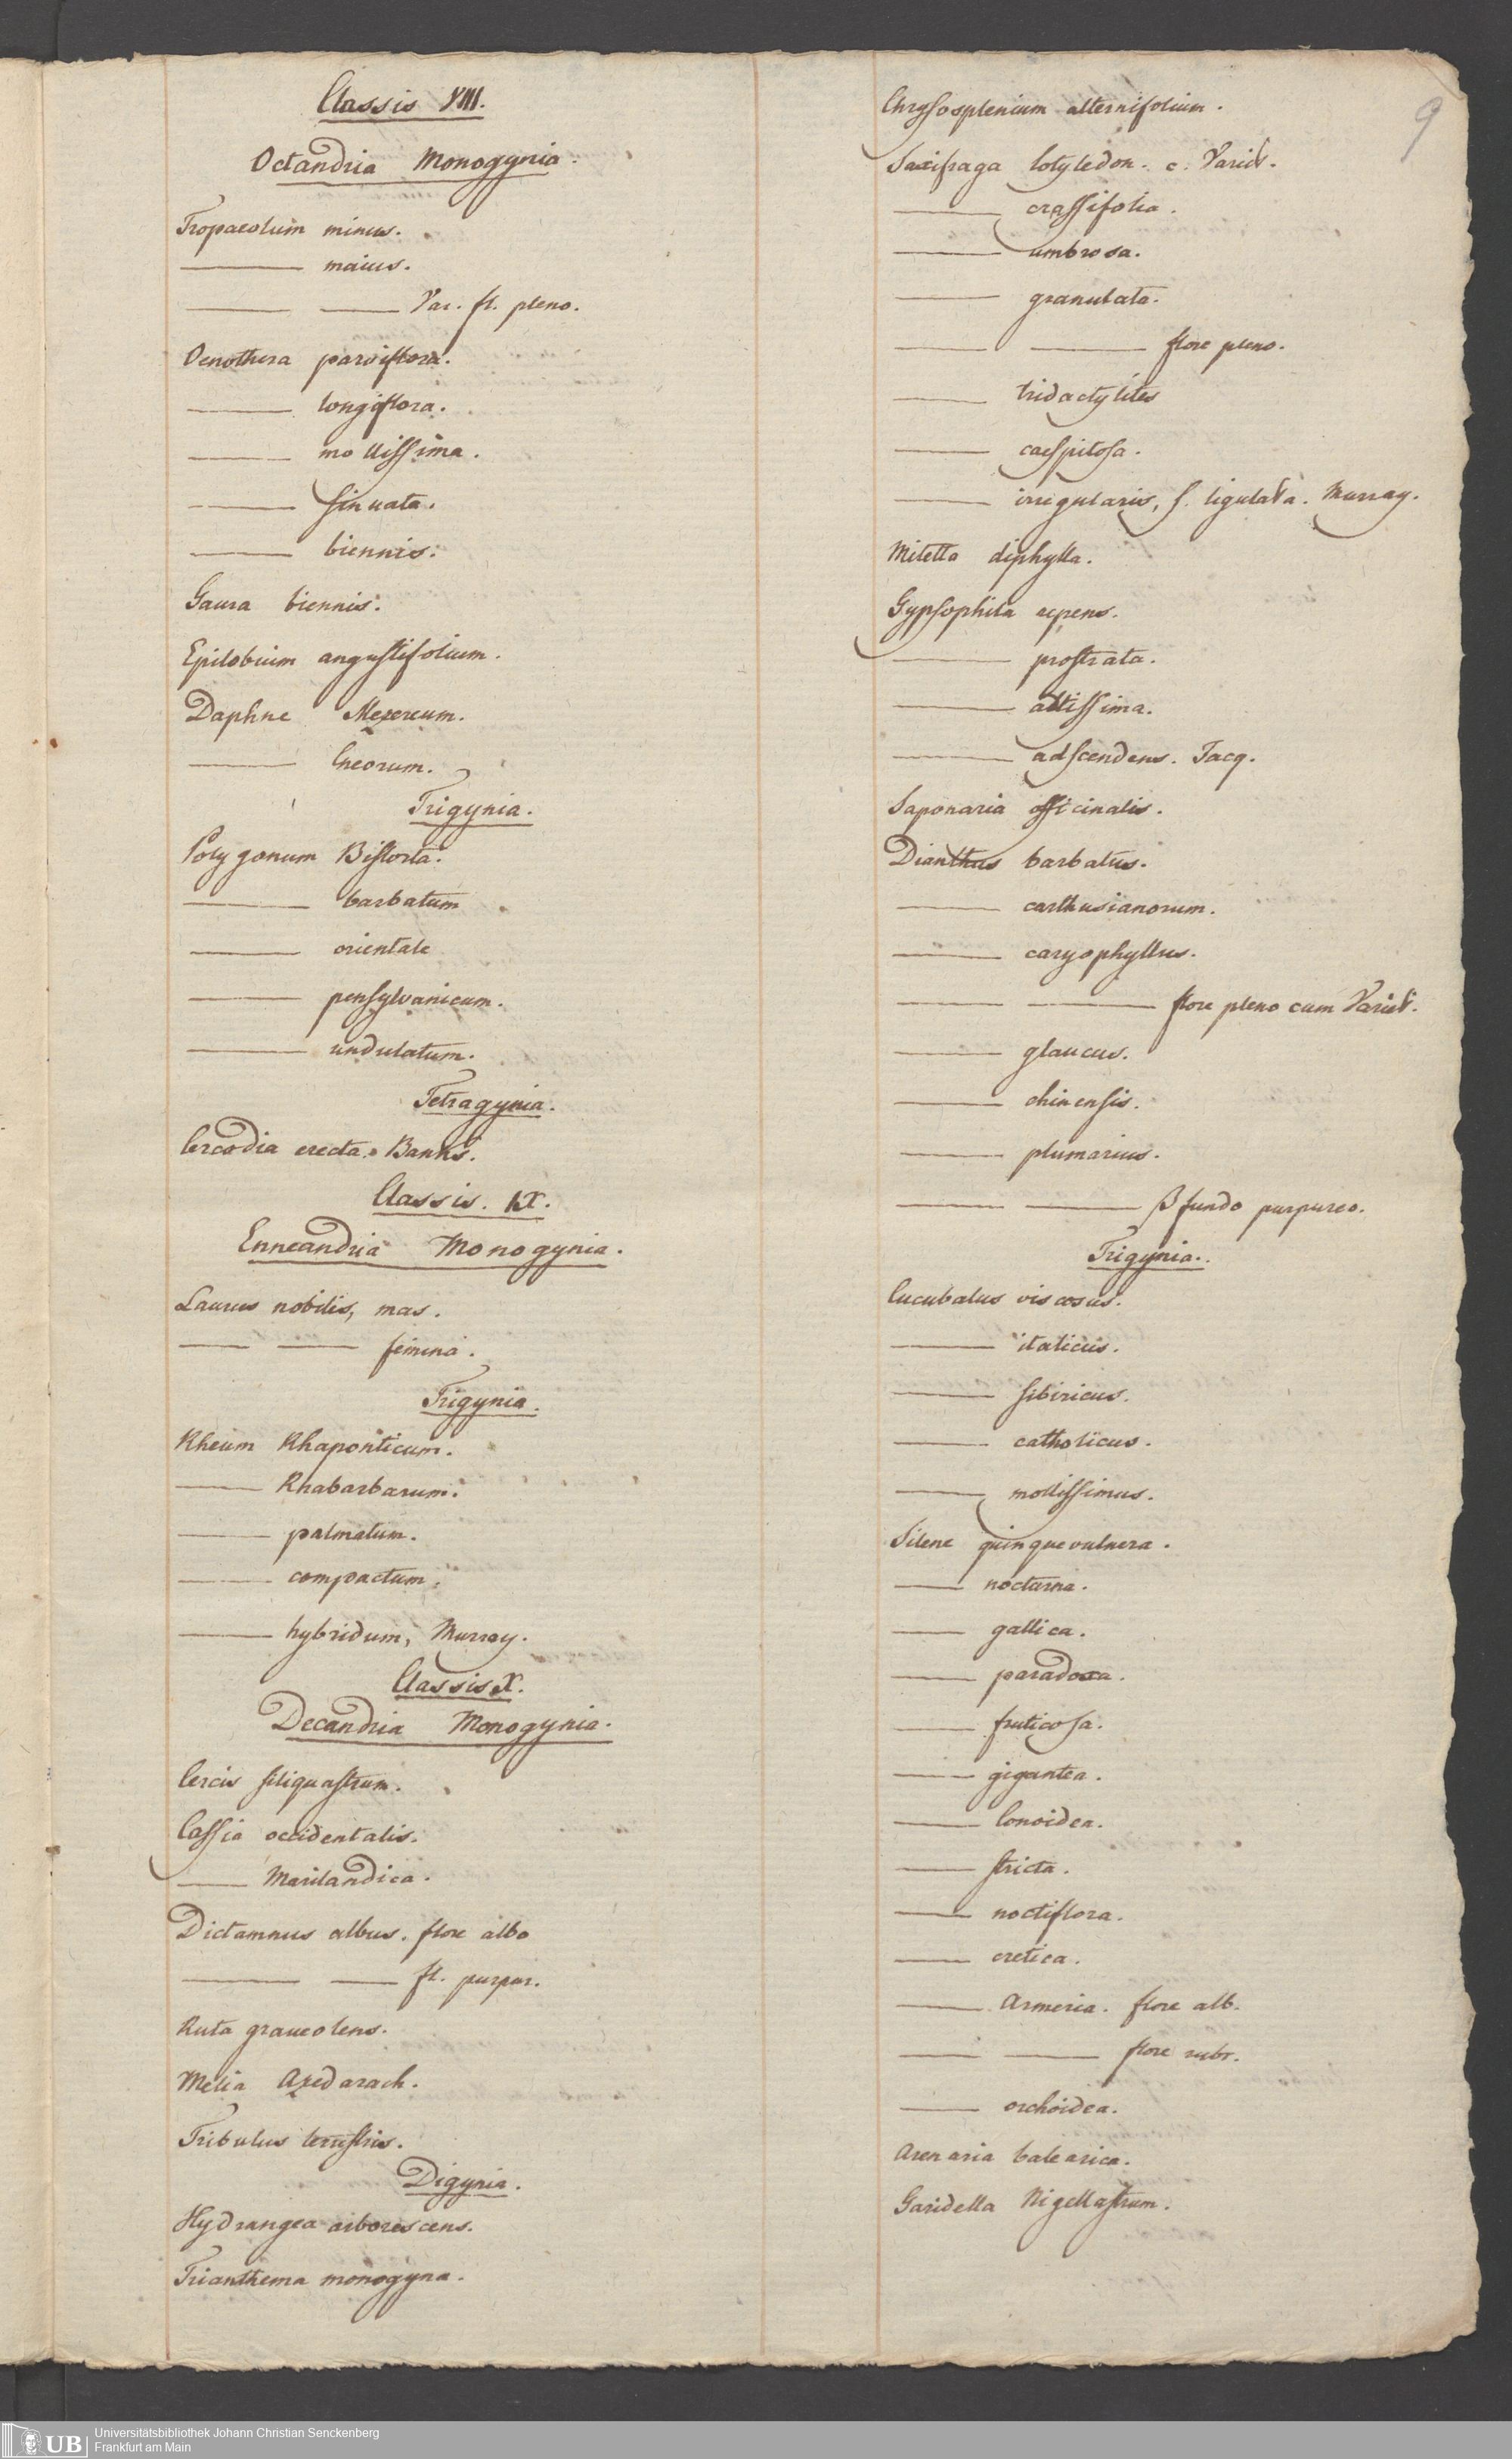 Classis VIII.
Octandria Monogynia.
Tropaeolum minus.
——— maius.
——— ——— Var. fl. pleno.
Oenothera parviflora.
——— longiflora.
——— mollissima.
——— sinuata.
——— biennis.
Gaura biennis.
Epilobium angustifolium.
Daphne Mezereum.
——— Cneorum.
Trigynia.
Polygonum Bistorta.
——— barbatum
——— orientale
——— pensylvanicum.
——— undulatum.
Tetragynia.
Cercodia erecta. Banks.
Classis. IX.
Enneandria Monogynia.
Laurus nobilis, mas.
——— ——— femina.
Trigynia.
Rheum Rhaponticum.
——— Rhabarbarum.
——— palmatum.
——— compactum.
——— hybridum, Murray.
Classis X.
Decandria Monogynia.
Cercis siliquastrum.
Cassia occidentalis.
——— Marilandica.
Dictamnus albus. flore albo
——— ——— fl. purpur.
Ruta graveolens.
Melia Azedarach.
Tribulus terrestris.
Digynia.
Hydrangea arborescens.
Trianthema monogyna.
9
Chrysosplenium alternifolium.
Saxifraga Cotyledon. c. Variet.
——— crassifolia.
——— umbrosa.
——— granulata.
——— ——— flore pleno.
——— tridactylites
——— caespitosa.
——— irregularis, s. ligulata. Murray.
Mitella diphylla.
Gypsophila repens.
——— prostrata.
——— altissima.
——— adscendens. Jacq.
Saponaria officinalis.
Dianthus barbatus.
——— carthusianorum.
——— caryophyllus.
——— ——— flore pleno cum Variet.
——— glaucus.
——— chinensis.
——— plumarius.
——— ——— β fundo purpureo.
Trigynia.
Cucubalus viscosus.
——— italicus.
——— sibiricus.
——— catholicus.
——— mollissimus.
Silene quinquevulnera.
——— nocturna.
——— gallica.
——— paradoxa.
——— fruticosa.
——— gigantea.
——— Conoidea.
——— stricta.
——— noctiflora.
——— cretica.
——— Armeria. flore alb.
——— ——— flore rubr.
——— orchoidea.
Arenaria balearica.
Garidella Nigellastrum.
UB
Universitätsbibliothek Johann Christian Senckenberg
Frankfurt am Main